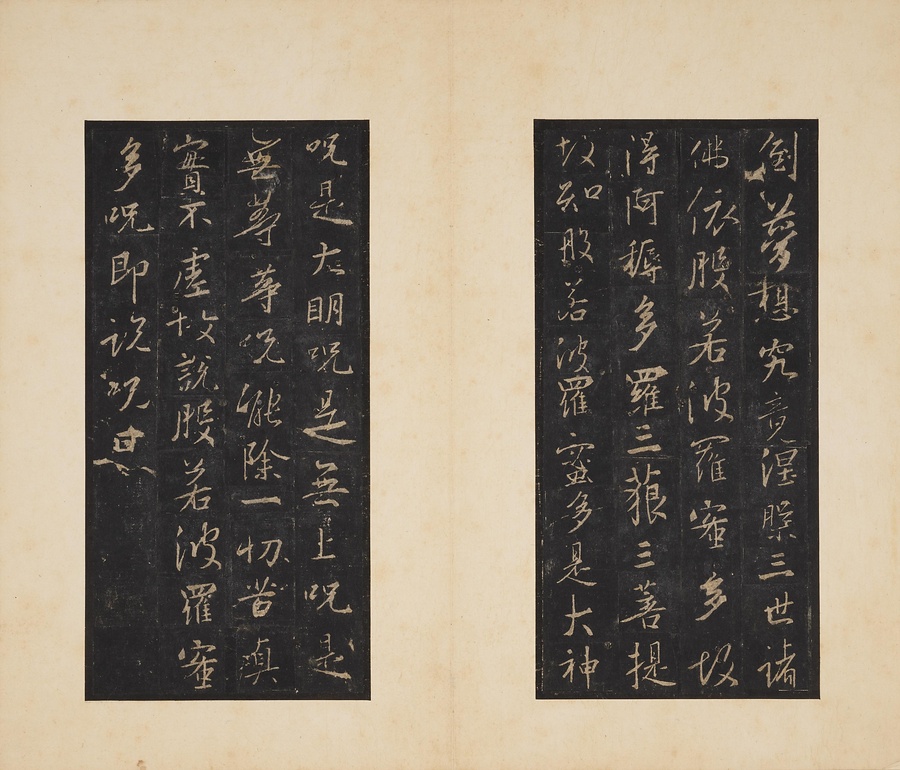 倒夢想究竟涅槃三世諸
佛依般若波羅蜜多故
得阿耨多羅三藐三菩提
故知般若波羅蜜多是大神
呪是大明呪是無上呪是
無等等呪能除一切苦真
實不虛故說般若波羅蜜
多呪即說呪